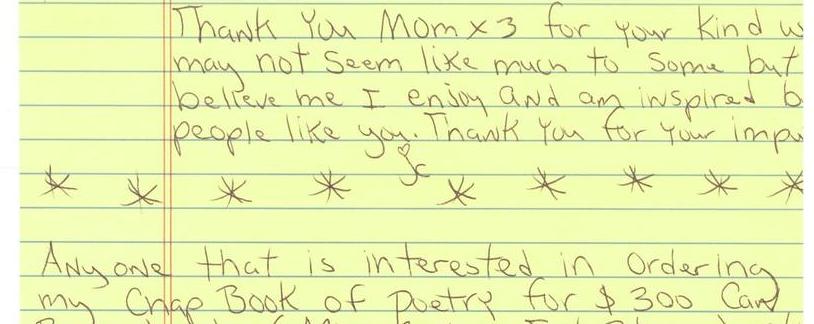 Thank You Mom x 3 for your kind
may not seem like much to some but
believe me I enjoy and am inspired
people like you. Thank You for your
JC
* * * * * * * * *
Anyone that is interested in ordering
my Chap Book of Poetry for $ 300 Can